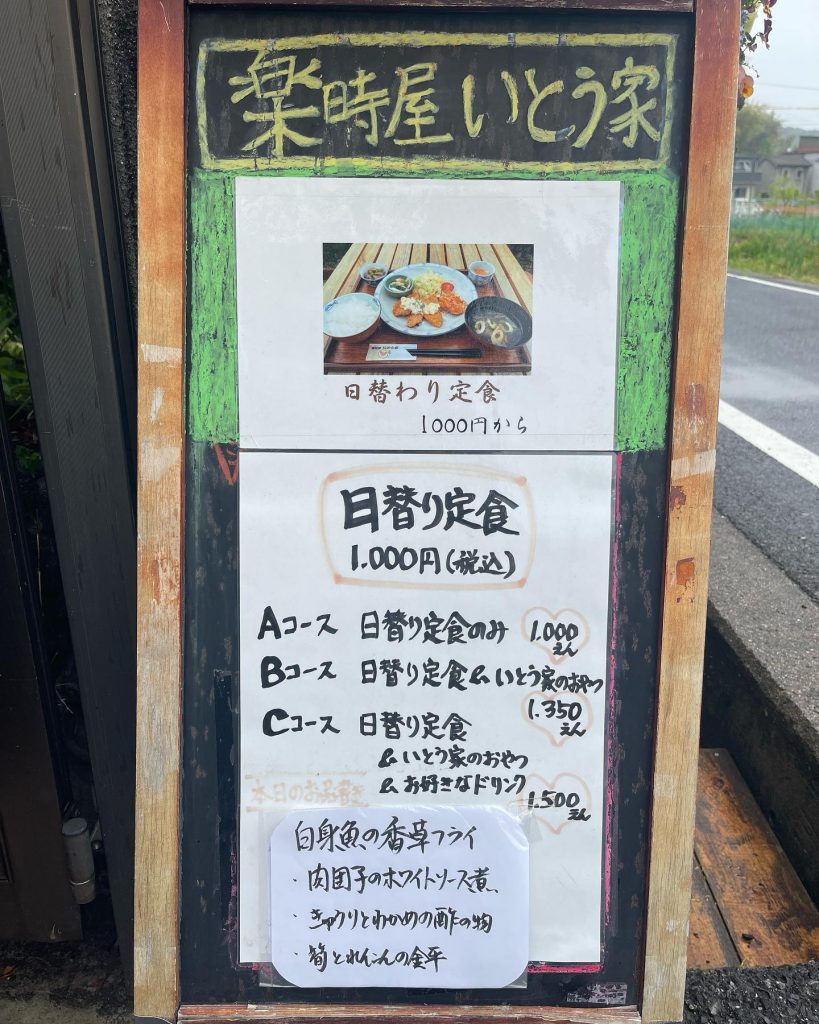 楽時屋いとう家
日替わり定食
1000円から
日替り定食
1.000円(税込)
Aコース 日替り定食のみ 1.000えん
Bコース 日替り定食&いとう家のおやつ
1.350えん
Cコース 日替り定食
&いとう家のおやつ
&お好きなドリンク
1.500えん
本日のお品書き
白身魚の香草フライ
・肉団子のホワイトソース煮
・きゅうりとわかめの酢の物
・筍とれんこんの金平